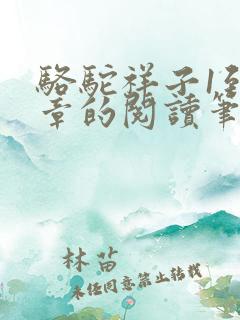 駱駝祥子1至
章的閱讀筆
林苗
未經同意禁止轉載